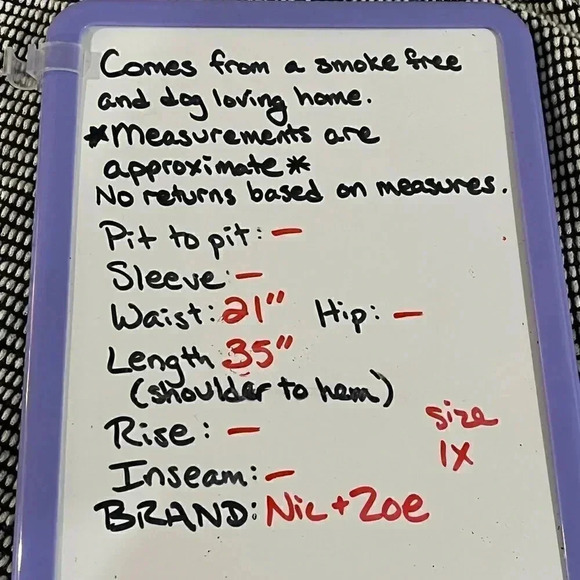 Comes from a smoke free
and dog loving home.
*Measurements are
approximate*
No returns based on measures.
Pit to pit: -
Sleeve: -
Waist: 21" Hip: -
Length 35"
(shoulder to hem)
Rise: -
size
1X
Inseam: -
BRAND: Nic+Zoe